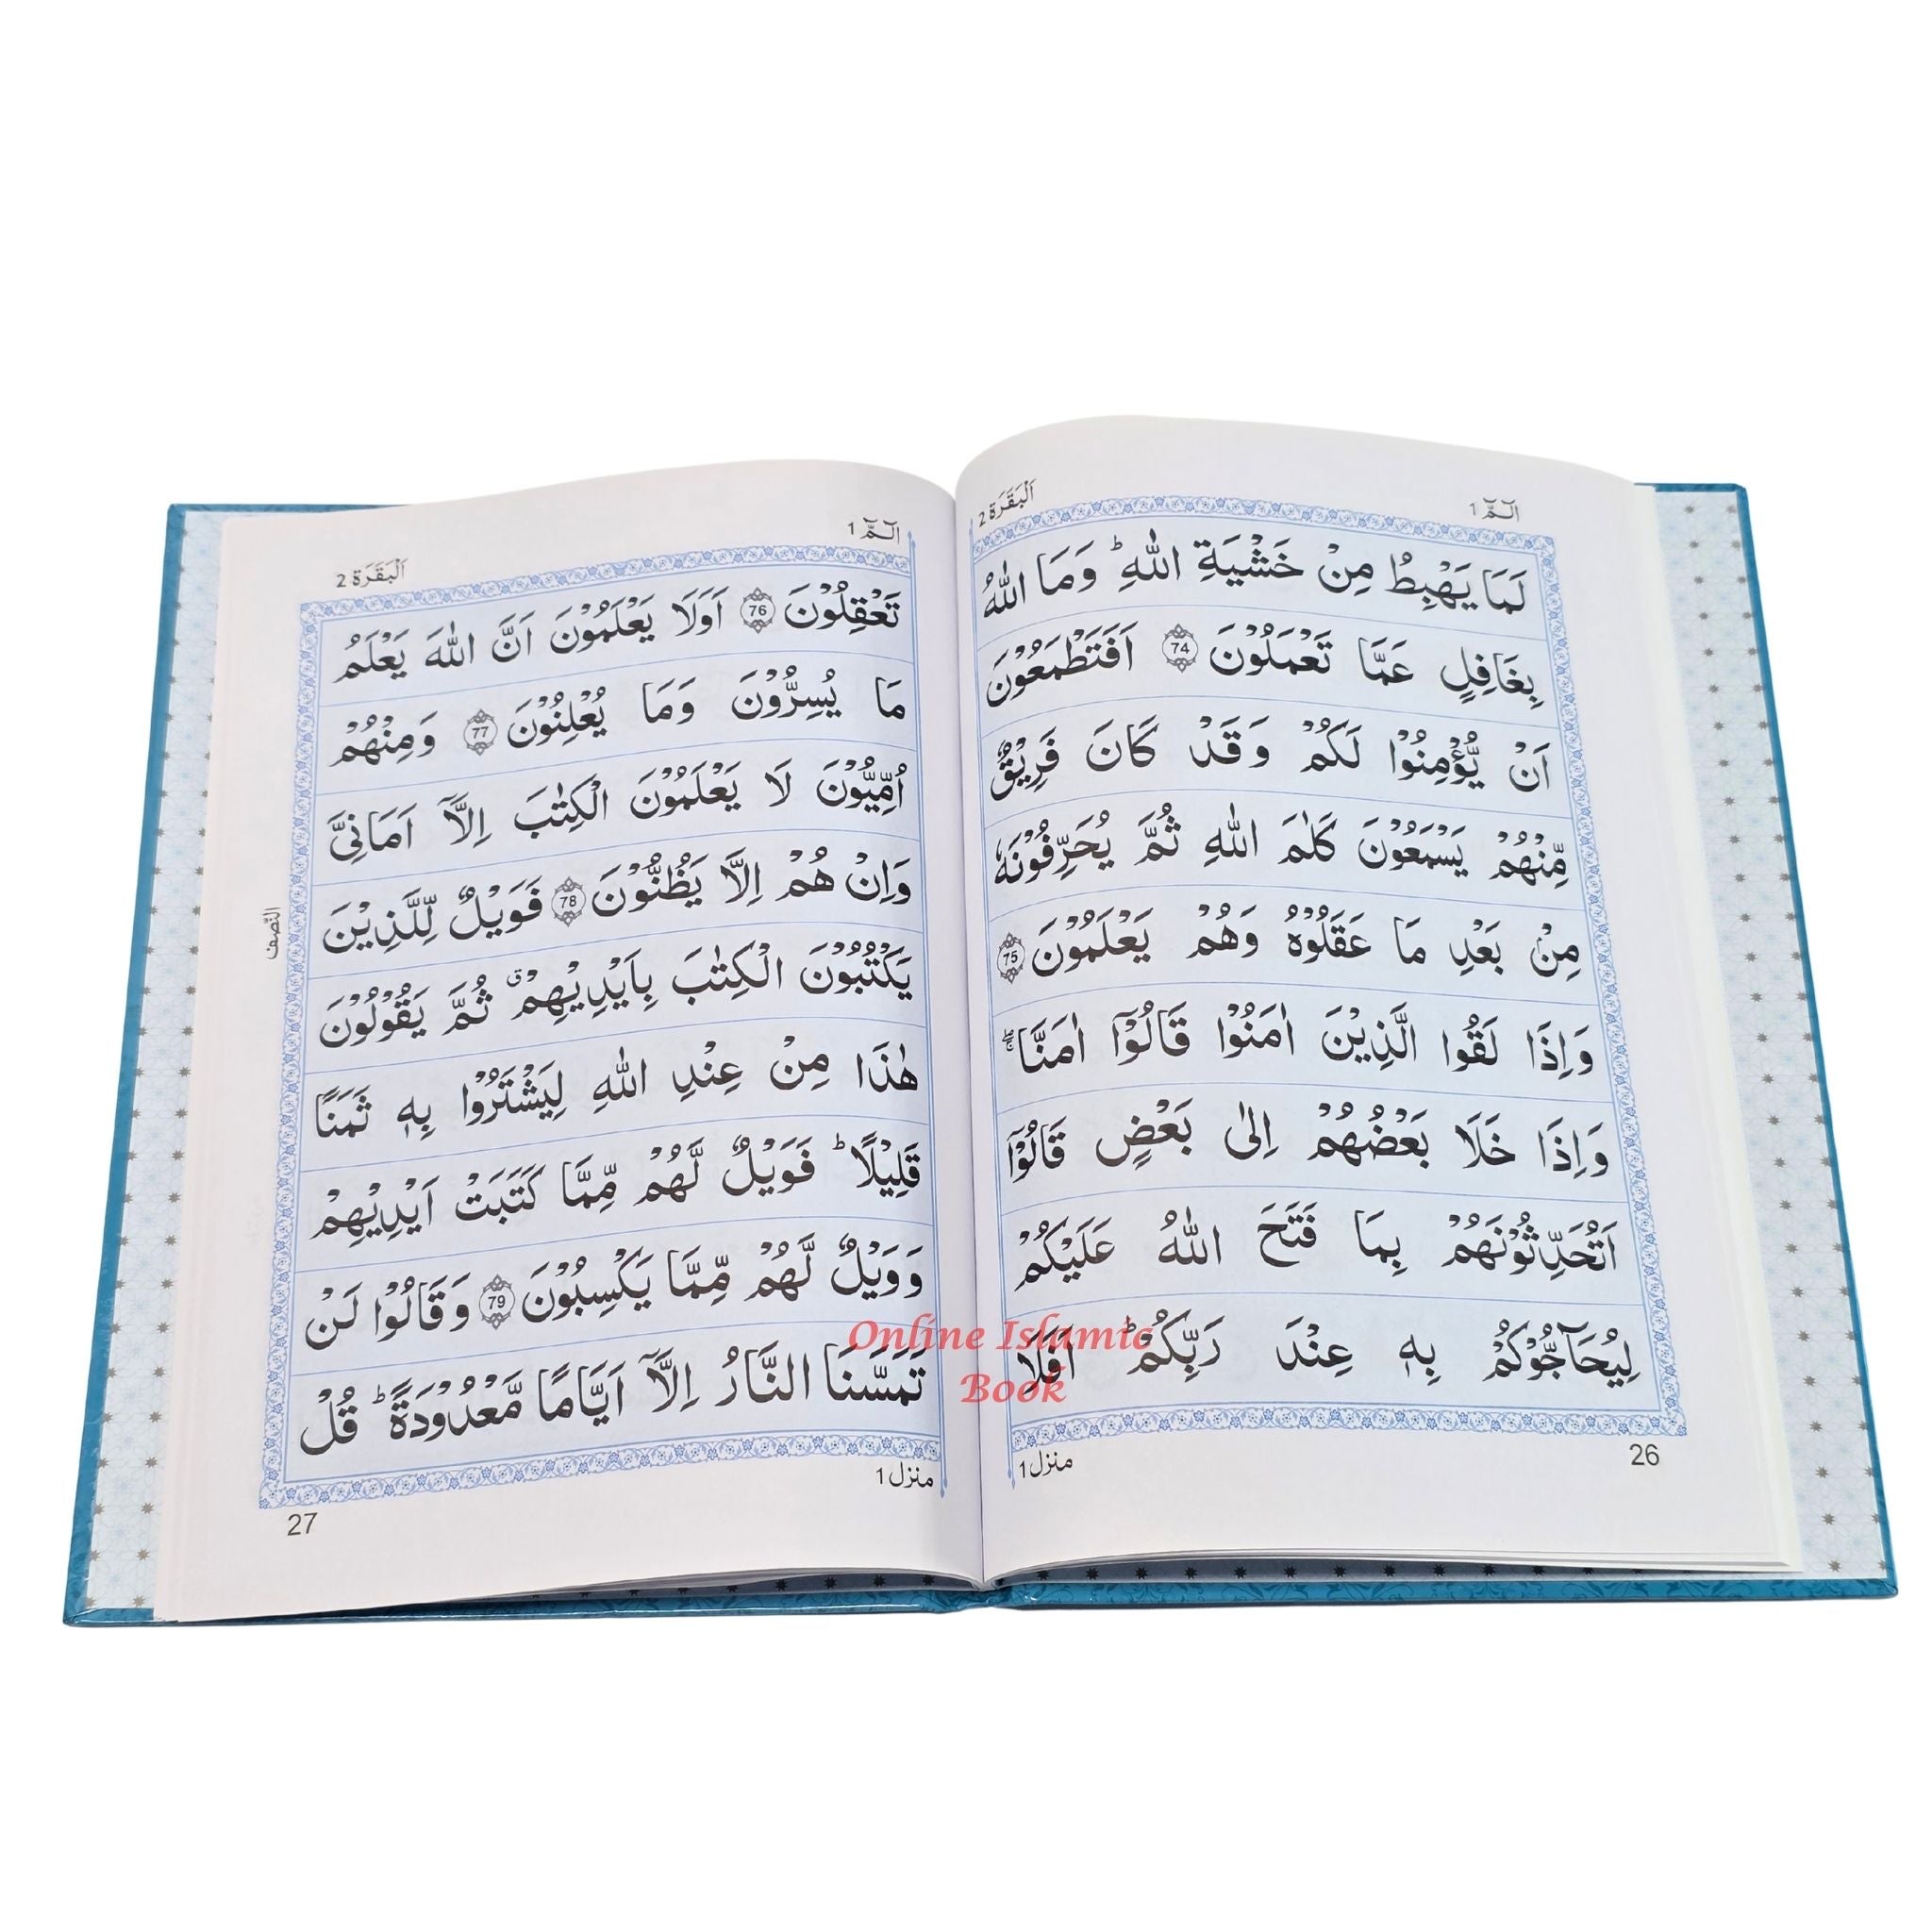 الٓمّٓ 1
اَلْبَقَرَة 2
لَمَا يَهْبِطُ مِنْ خَشْيَةِ اللّٰهِ ؕ وَمَا اللّٰهُ
بِغَافِلٍ عَمَّا تَعْمَلُوْنَ 74 اَفَتَطْمَعُوْنَ
اَنْ يُّؤْمِنُوْا لَكُمْ وَقَدْ كَانَ فَرِيْقٌ
مِّنْهُمْ يَسْمَعُوْنَ كَلٰمَ اللّٰهِ ثُمَّ يُحَرِّفُوْنَهٗ
مِنْ بَعْدِ مَا عَقَلُوْهُ وَهُمْ يَعْلَمُوْنَ 75
وَاِذَا لَقُوا الَّذِيْنَ اٰمَنُوْا قَالُوْٓا اٰمَنَّا ۚۖ
وَاِذَا خَلَا بَعْضُهُمْ اِلٰى بَعْضٍ قَالُوْٓا
اَتُحَدِّثُوْنَهُمْ بِمَا فَتَحَ اللّٰهُ عَلَيْكُمْ
لِيُحَآجُّوْكُمْ بِهٖ عِنْدَ رَبِّكُمْ ؕ اَفَلَا
منزل 1
26
الٓمّٓ 1
اَلْبَقَرَة 2
تَعْقِلُوْنَ 76 اَوَلَا يَعْلَمُوْنَ اَنَّ اللّٰهَ يَعْلَمُ
مَا يُسِرُّوْنَ وَمَا يُعْلِنُوْنَ 77 وَمِنْهُمْ
اُمِّيُّوْنَ لَا يَعْلَمُوْنَ الْكِتٰبَ اِلَّآ اَمَانِىَّ
وَاِنْ هُمْ اِلَّا يَظُنُّوْنَ 78 فَوَيْلٌ لِّلَّذِيْنَ
النّصف
يَكْتُبُوْنَ الْكِتٰبَ بِاَيْدِيْهِمْ ۗ ثُمَّ يَقُوْلُوْنَ
هٰذَا مِنْ عِنْدِ اللّٰهِ لِيَشْتَرُوْا بِهٖ ثَمَنًا
قَلِيْلًا ؕ فَوَيْلٌ لَّهُمْ مِّمَّا كَتَبَتْ اَيْدِيْهِمْ
وَوَيْلٌ لَّهُمْ مِّمَّا يَكْسِبُوْنَ 79 وَقَالُوْا لَنْ
تَمَسَّنَا النَّارُ اِلَّآ اَيَّامًا مَّعْدُوْدَةً ؕ قُلْ
منزل 1
27
Online Islamic
Book